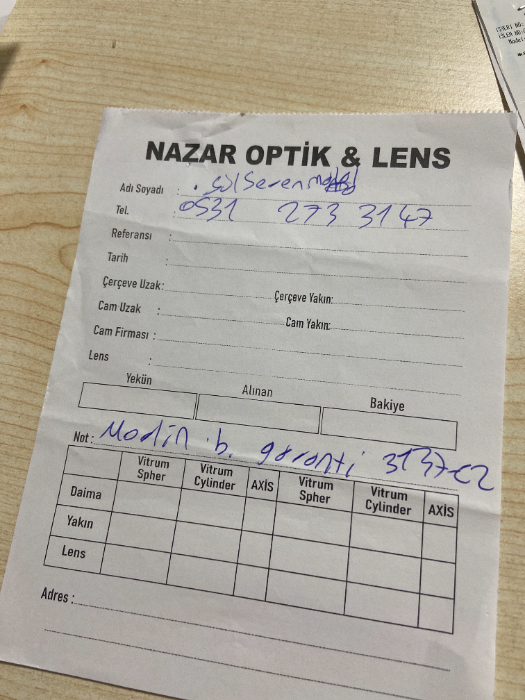 NAZAR OPTİK & LENS
Adı Soyadı :
Tel. : 0531 273 3147
Referansı :
Tarih :
Çerçeve Uzak: Çerçeve Yakın:
Cam Uzak : Cam Yakın:
Cam Firması :
Lens :
Yekün Alınan Bakiye
Not : Modin b. garanti 3137-C2
Vitrum Spher Vitrum Cylinder AXİS Vitrum Spher Vitrum Cylinder AXİS
Daima
Yakın
Lens
Adres :